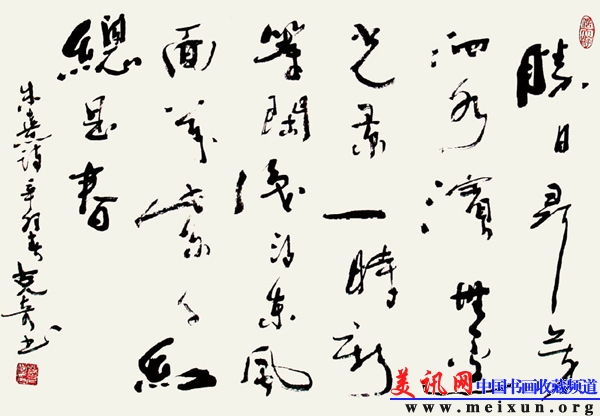 勝日尋芳
泗水濱無邊
光景一時新
等閑識得東風
面萬紫千紅
總是春
朱熹詩辛卯春
美讯网 中国书画收藏频道
www.meixun.org